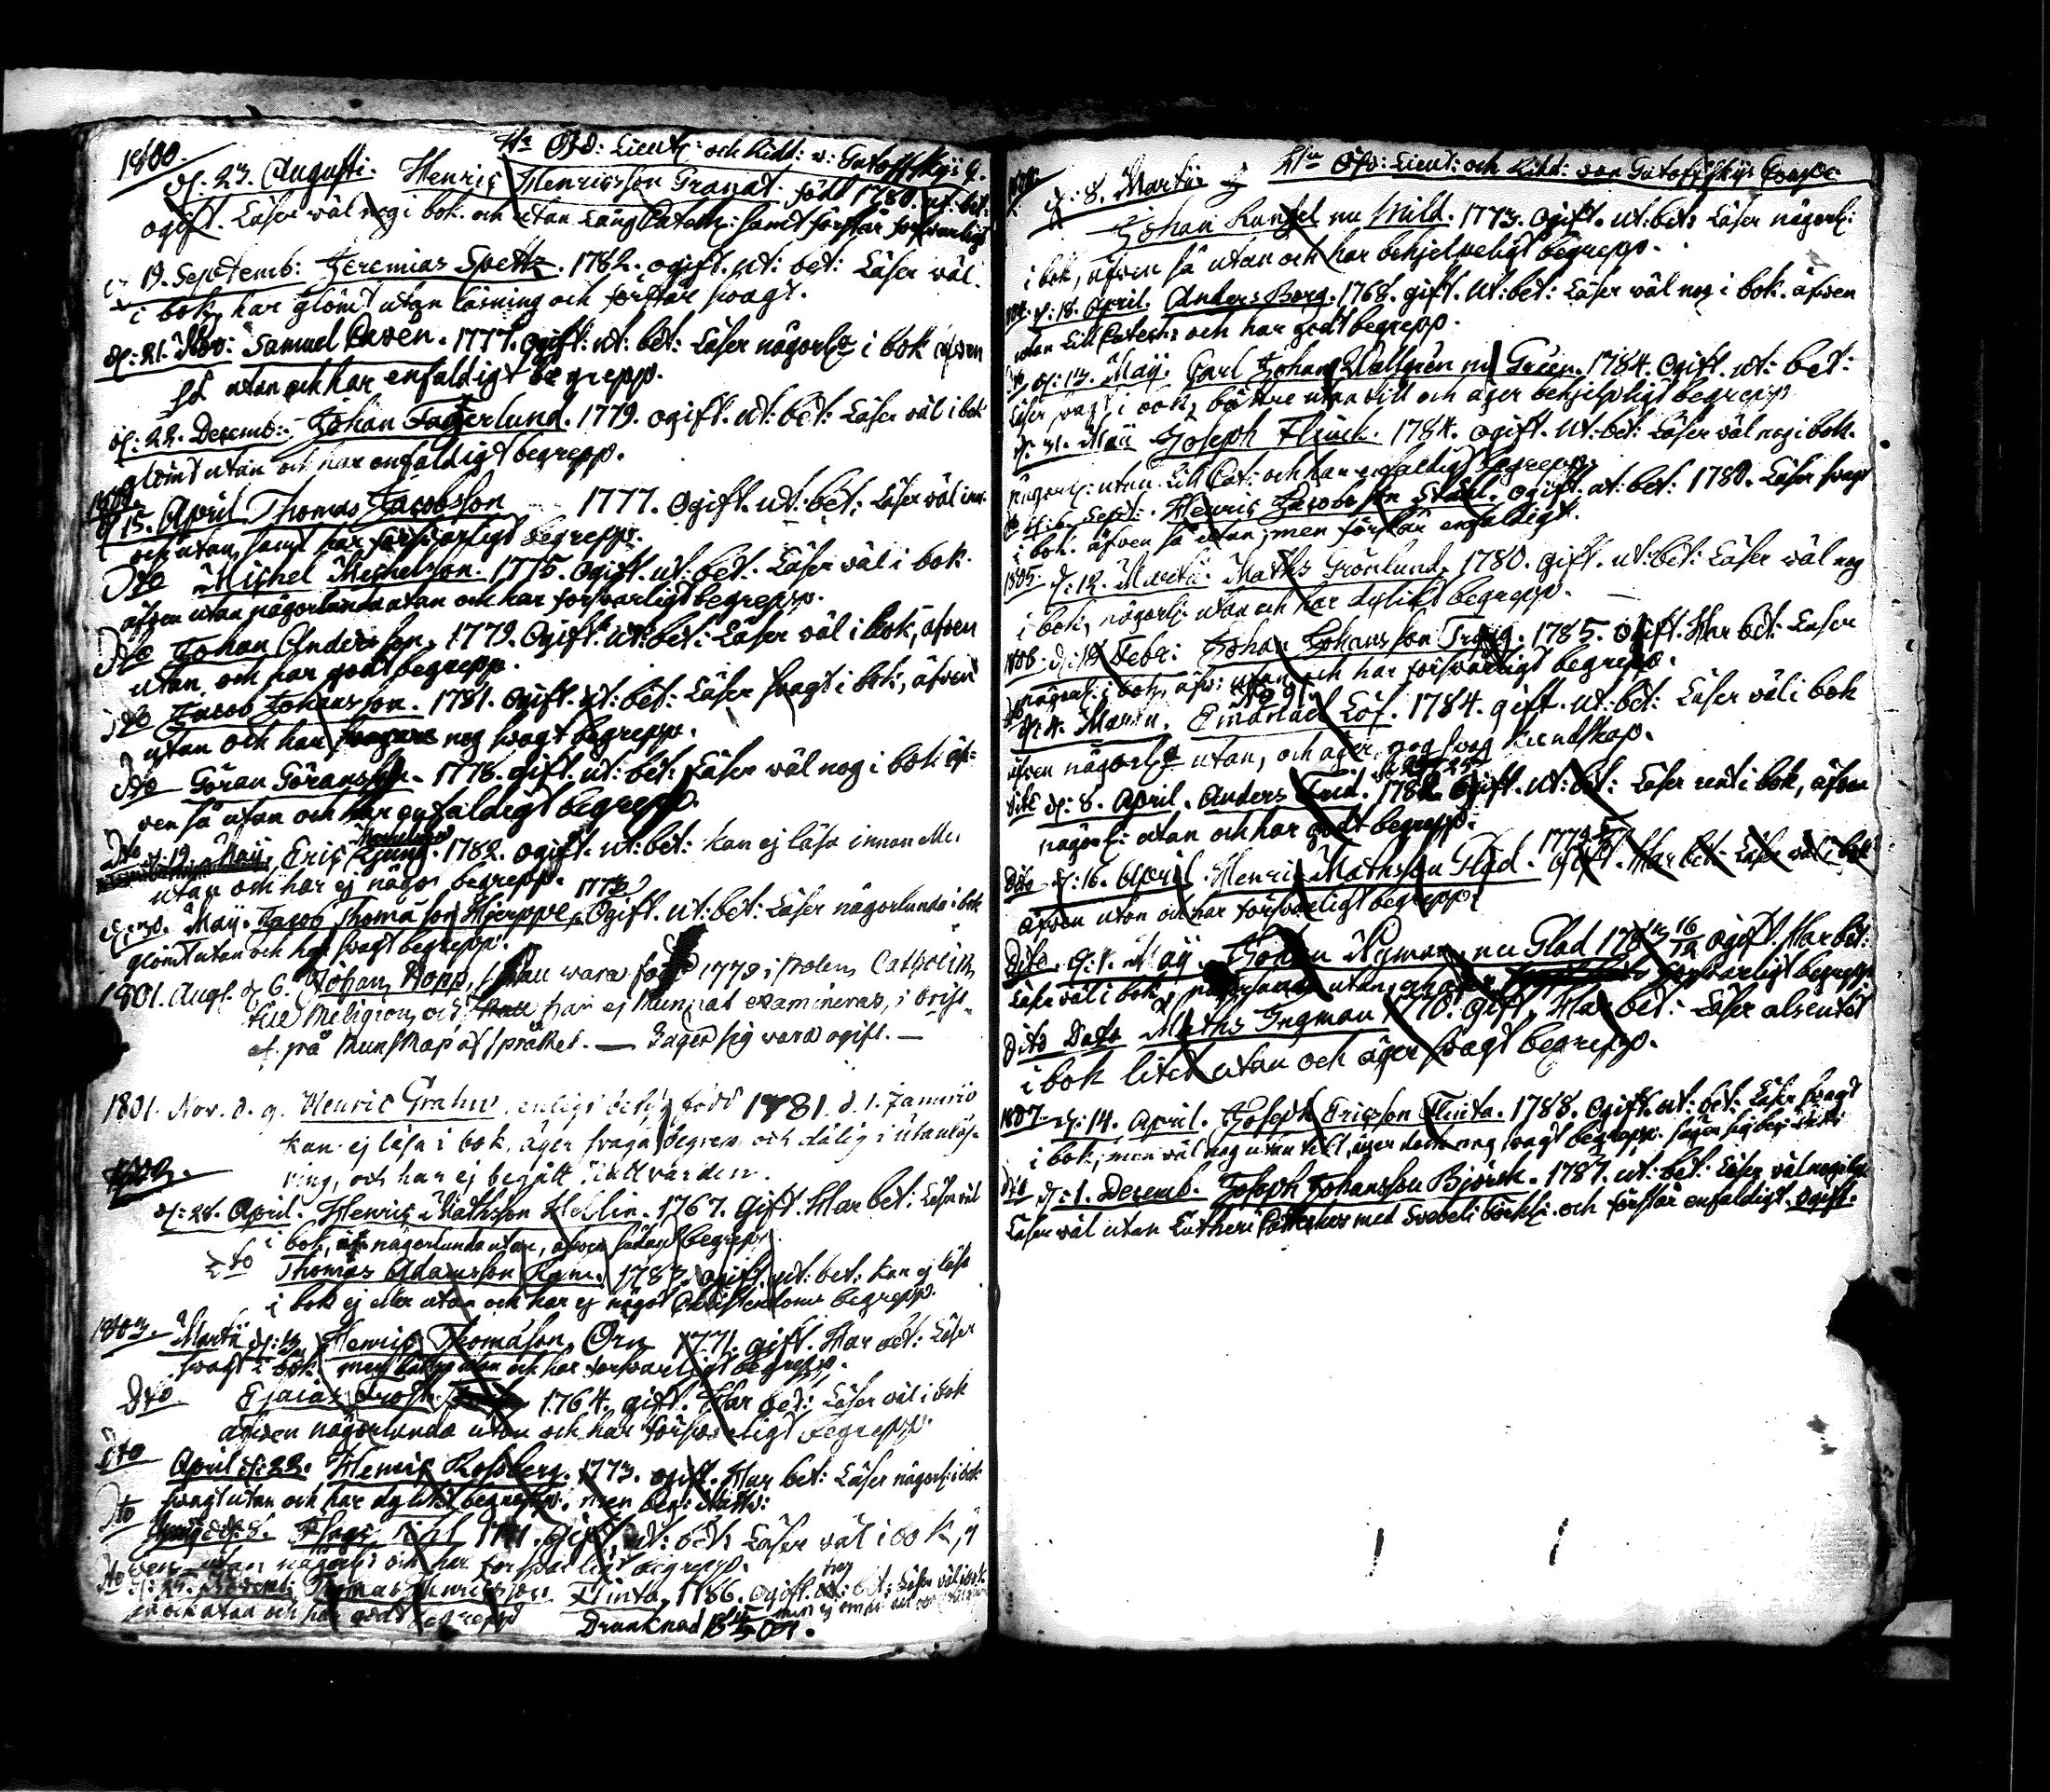 1800.
Hr Öfv: Lieut: och Ridd: v: Gutoffskys C.
d: 23. Augusti. Henric Henricsson Granat. född 1780. ut: bet:
ogift. Läser wäl nog i bok och utan Lång Catech: samt förstår försvarligt
d: 19. Septemb: Jeremias Spetts. 1782. ogift. ut: bet: Läser wäl
i bok, har glömt utan läsning och förstår swagt.
d: 21. Nov: Samuel Caven. 1777. Ogift. ut: bet: Läser någorl: i bok äfven
så utan och har enfaldigt begrepp.
d: 22. Decemb: Johan Fagerlund. 1779. ogift. ut: bet: Läser wäl i bok
glömt utan och har enfaldigt begrepp.
d 15. April Thomas Jacobsson 1777. Ogift. ut: bet: Läser wäl inn:
och utan, samt har försvarligt begrepp.
Dto Michel Michelsson. 1775. Ogift. ut: bet: Läser wäl i bok.
äfven utan någorlunda utan och har försvarligt begrepp.
Dto Johan Andersson. 1779. Ogift. ut: bet: Läser wäl i bok, äfven
utan och har godt begrepp.
Dto Jacob Johansson. 1781. Ogift. ut: bet: Läser swagt i bok, äfven
utan och har nog swagt begrepp.
Dto Göran Göransson. 1778. gift. ut: bet: Läser wäl nog i bok äf-
ven så utan och har enfaldigt begrepp.
Dto d: 19. Maji. Eric Ljung. 1782. ogift. ut: bet: kan ej läsa innan eller
utan och har ej något begrepp.
d: 30. Maji. Jacob Thomasson Hjerppe. Ogift. ut: bet: Läser någorlunda i bok
glömt utan och har swagt begrepp.
1801. Aug. d 6. Johan Hopp, skall wara född 1779 i Polen, Catholik
till Religion, och har ej kunnat examineras, i brist
på kunskap af språket. — Säger sig vara ogift. —
1801. Nov. d. 9. Henric Grahn, enligt betyg född 1781. d. 1. Januarii
kan ej läsa i bok, äger svaga begrep och dålig i utanläs-
ning, och har ej begått nattvarden.
1802.
d: 28. April. Henric Mathsson Hellin. 1767. Gift. Har bet: Läser wäl
i bok, någorlunda utan, äfven sådant begrepp.
Dto Thomas Adamsson Ram. 1783. ogift. ut: bet: kan ej läsa
i bok ej eller utan och har ej något Christendoms begrepp.
1803. Martii d: 13. Henric Thomasson Örn 1771. gift. Har bet: Läser
swagt i bok, men bättre utan och har försvarligt begrepp.
Dto Esaias Frost 1764. gift. Har bet: Läser wäl i bok
äfven någorlunda utan och har försvarligt begrepp
Dto April d: 22. Henric Rossberg. 1773. ogift. Har bet: Läser någorl: i bok
swagt utan och har dylikt begrepp, men beg: Nattv:
Dto gift, ut: bet: Läser wäl i bok, ä
ven utan någorl: och har försvarligt begrepp.
Dto Thomas Henricsson Flinta, 1786. Ogift. bet: Läser wäl i bok
så ock utan och har godt begrepp
Drunknad
Hr Öfv: Lieut: och Ridd: von Gutoffskys Comp:
d: 8. Martii
Johan Rungel nu Mild. 1773. Ogift. ut: bet: Läser någorl:
i bok, äfven så utan och har behjelpeligt begrepp.
d: 18. April. Anders Borg. 1768. gift. ut: bet: Läser wäl nog i bok. äfven
utan Lill Catech: och har godt begrepp.
d: 13. Maij. Carl Johan Wallgren nu Green. 1784. Ogift. ut: bet:
Läser swagt i bok, bättre utan till och äger behjelpligt begrepp
d: 31. Maii Joseph Flinck. 1784. ogift. ut: bet: Läser wäl nog i bok.
någorl: utan Lill Cat: och har enfaldigt begrepp.
d: 6. Sept: Henric Jacobsson Stähl. Ogift. ut: bet: 1780. Läser swagt
i bok. äfven så utan, men förstår enfaldigt.
1805. d: 12. Martii. Maths Grönlund. 1780. gift. ut: bet: Läser wäl nog
i bok, någorl: utan och har dylikt begrepp.
1806. d: 19 Febr: Johan Johansson Trygg. 1785. Ogift. Har bet: Läser
någorl: i bok, äfv: utan och har försvarligt begrepp.
d: 4. Martii. Löf. 1784. gift. ut: bet: Läser wäl i bok
äfven någorl: utan, och äger nog swag kundskap.
Dito d: 8. April. Anders Ogift. ut: bet: Läser rent i bok, äfven
någorl: utan och har godt begrepp.
Dito d: 16. April. Henric Mathsson Glad. gift. Har bet: Läser wäl i bok
äfven utan och har försvarligt begrepp.
Dito d: 1. Maij. Johan Nyman nu Glad ogift. Har bet:
Läser wäl i bok, utan, försvarligt begrepp
Dito Dato Maths Ingman 1770. Gift. Har bet: Läser alsentet
i bok litet utan och äger swagt begrepp.
1807. d: 14. April. Joseph Ericsson Flinta. 1788. Ogift. ut: bet: Läser swagt
i bok, men wäl nog utan till, äger dock nog swagt begrepp.
Dito d: 1. Decemb. Joseph Johansson Björck. 1787. ut: bet: Läser wäl nog i bok
Läser wäl utan Lutheri Catteches med Svebeli och förstår enfaldigt. Ogift.